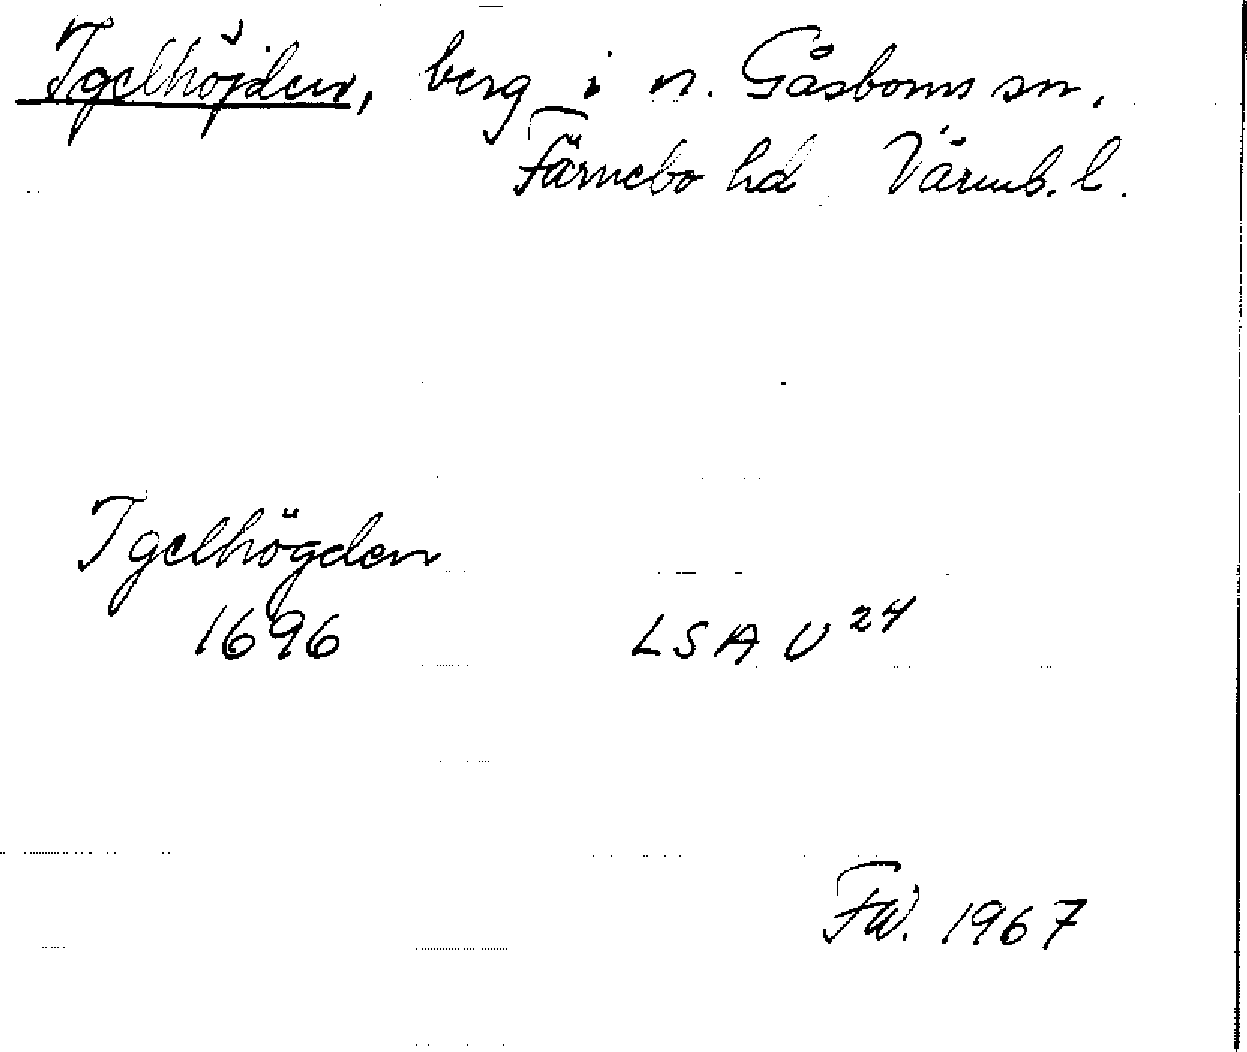 Igelhöjden, berg i n. Gåsborns sn,
Färnebo hd Värml. l.
Igelhögden
1696 LSA U 24
Fw. 1967